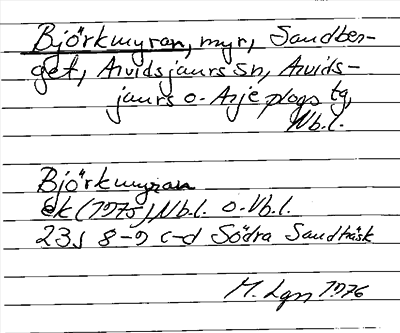 Björkmyran, myr, Sandber-
get, Arvidsjaurs sn, Arvids-
jaurs o. Arjeplogs tg,
Nb.l.
Björkmyran
ek (1975), Nb.l. o. Vb.l.
23J 8-9 c-d Södra Sandträsk
M. Lgn 1976